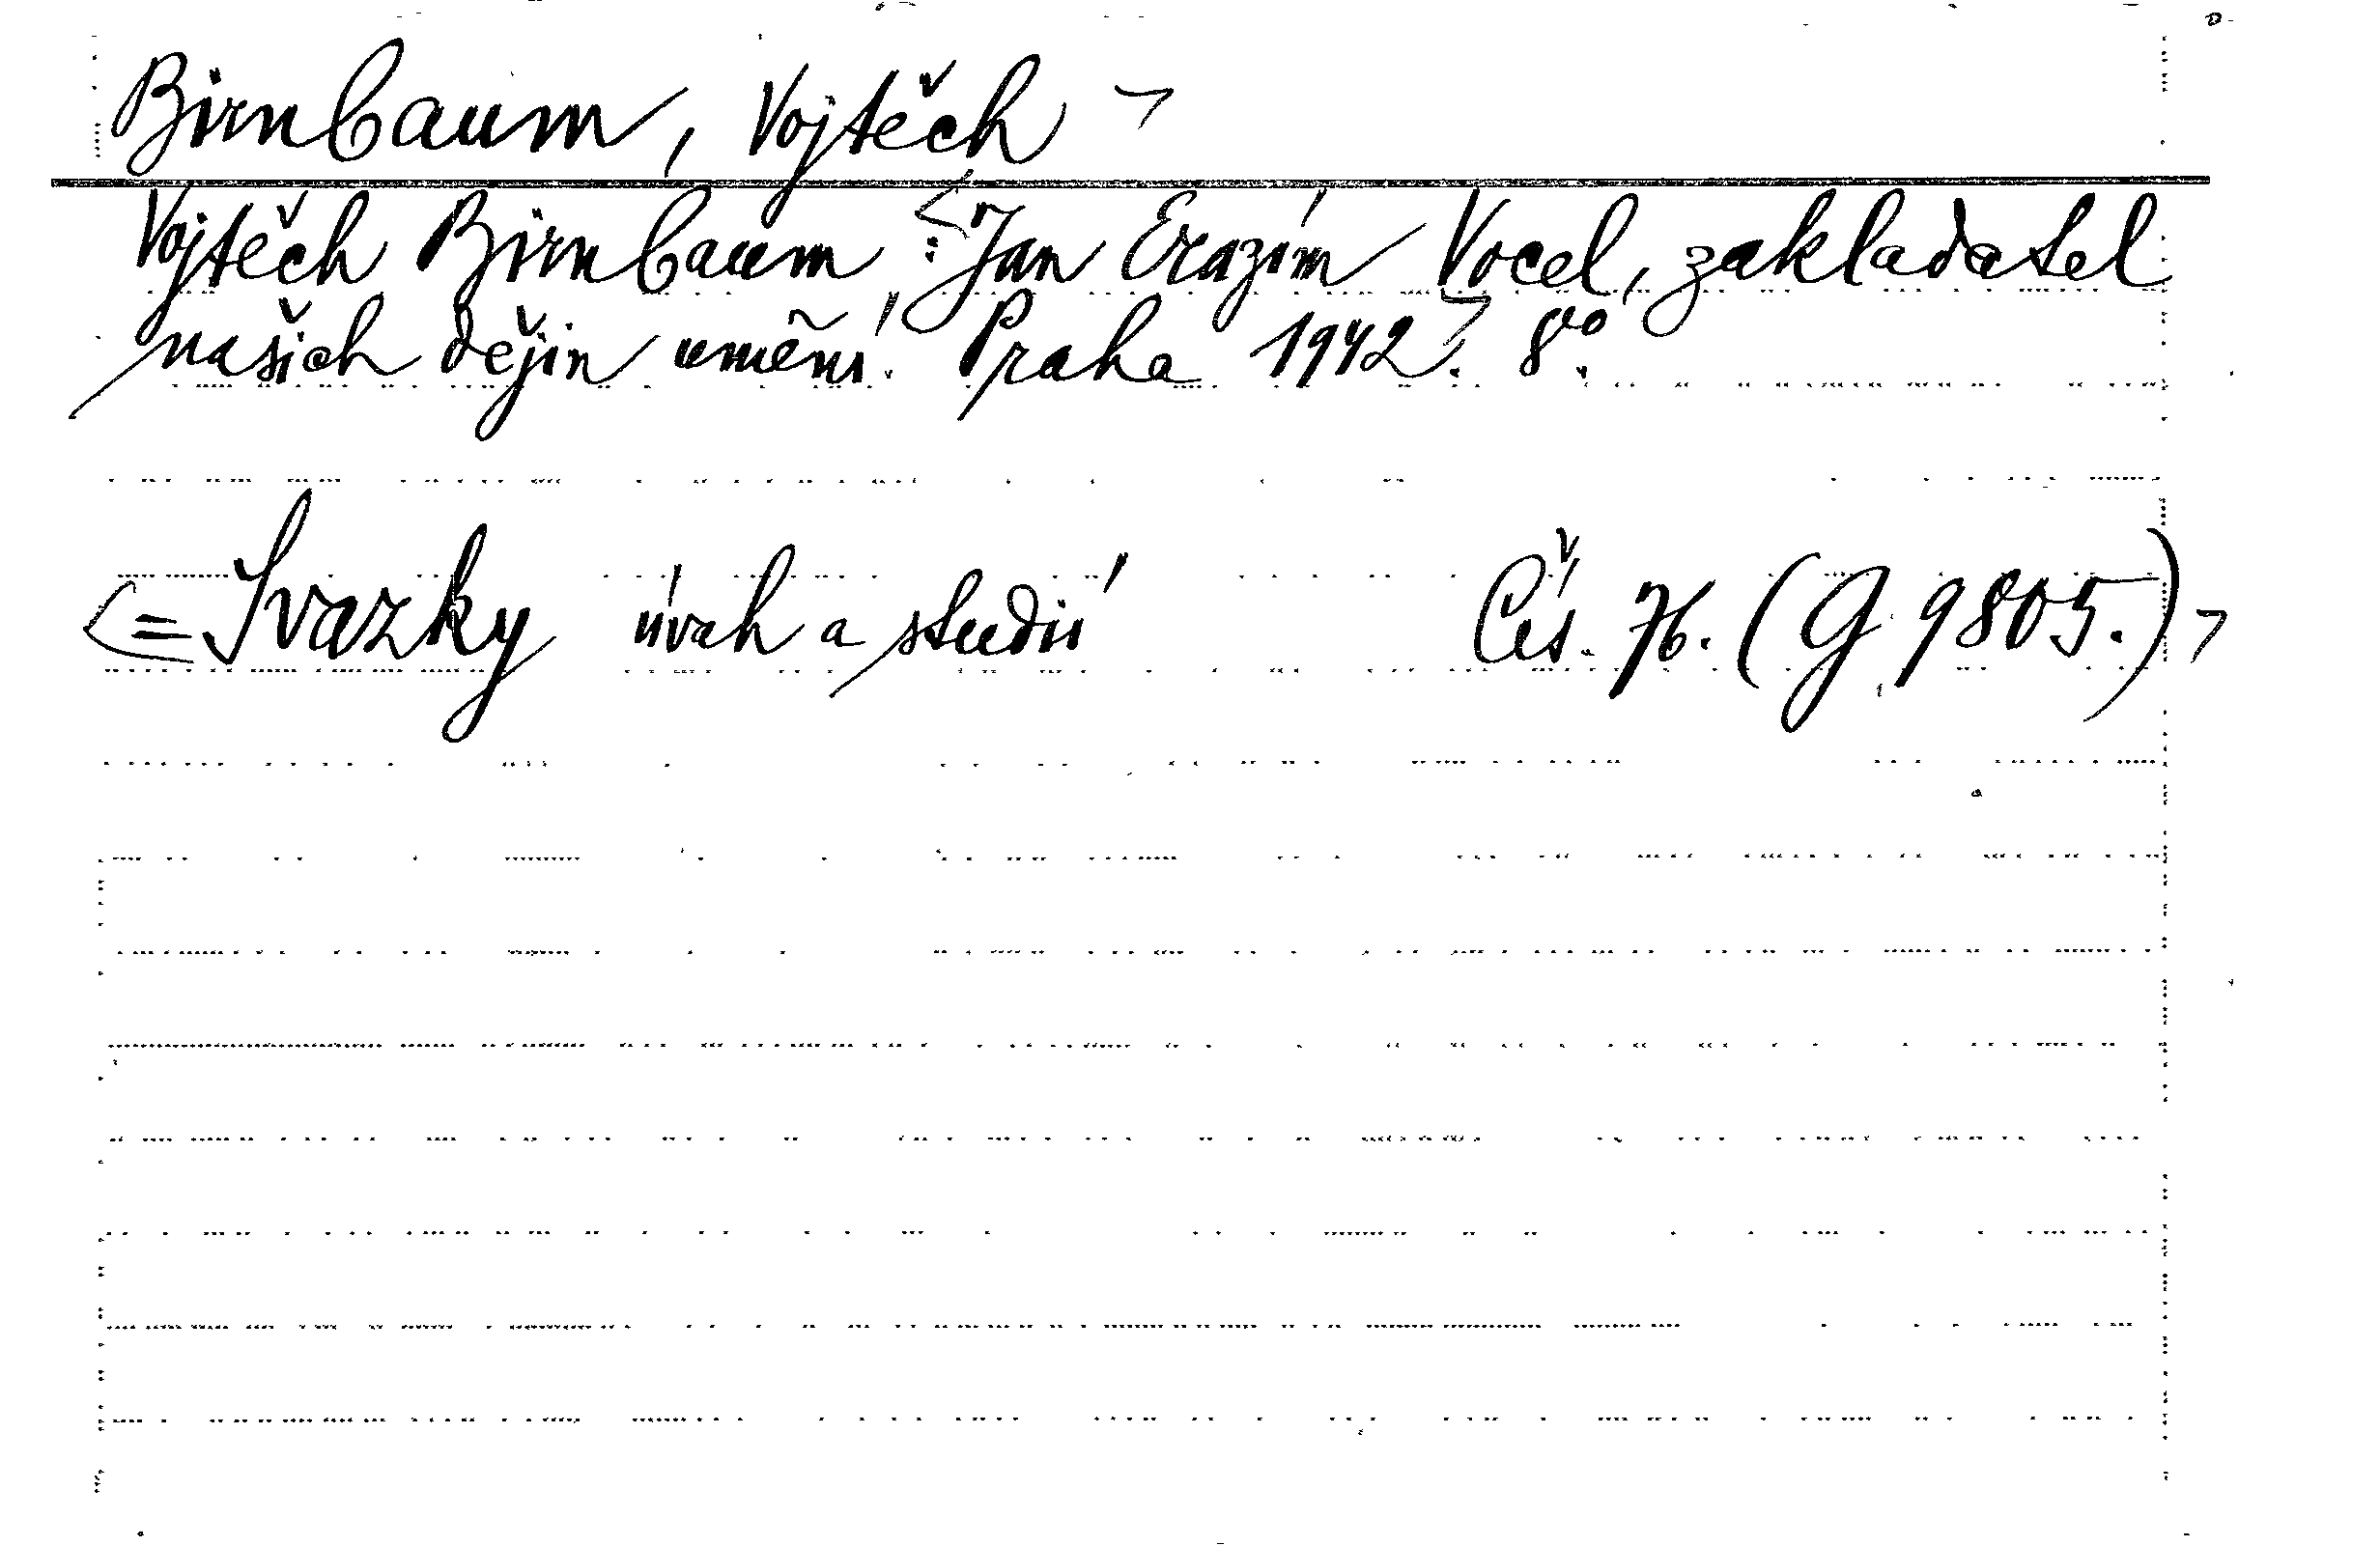 Birnbaum, Vojtěch >
Vojtěch Birnbaum : <Jan Erazím Vocel, zakladatel
našich dějin umění. Praha 1942>. 8vo.
<= Svazky úvah a studií Čís. 76. (G 9805.)>